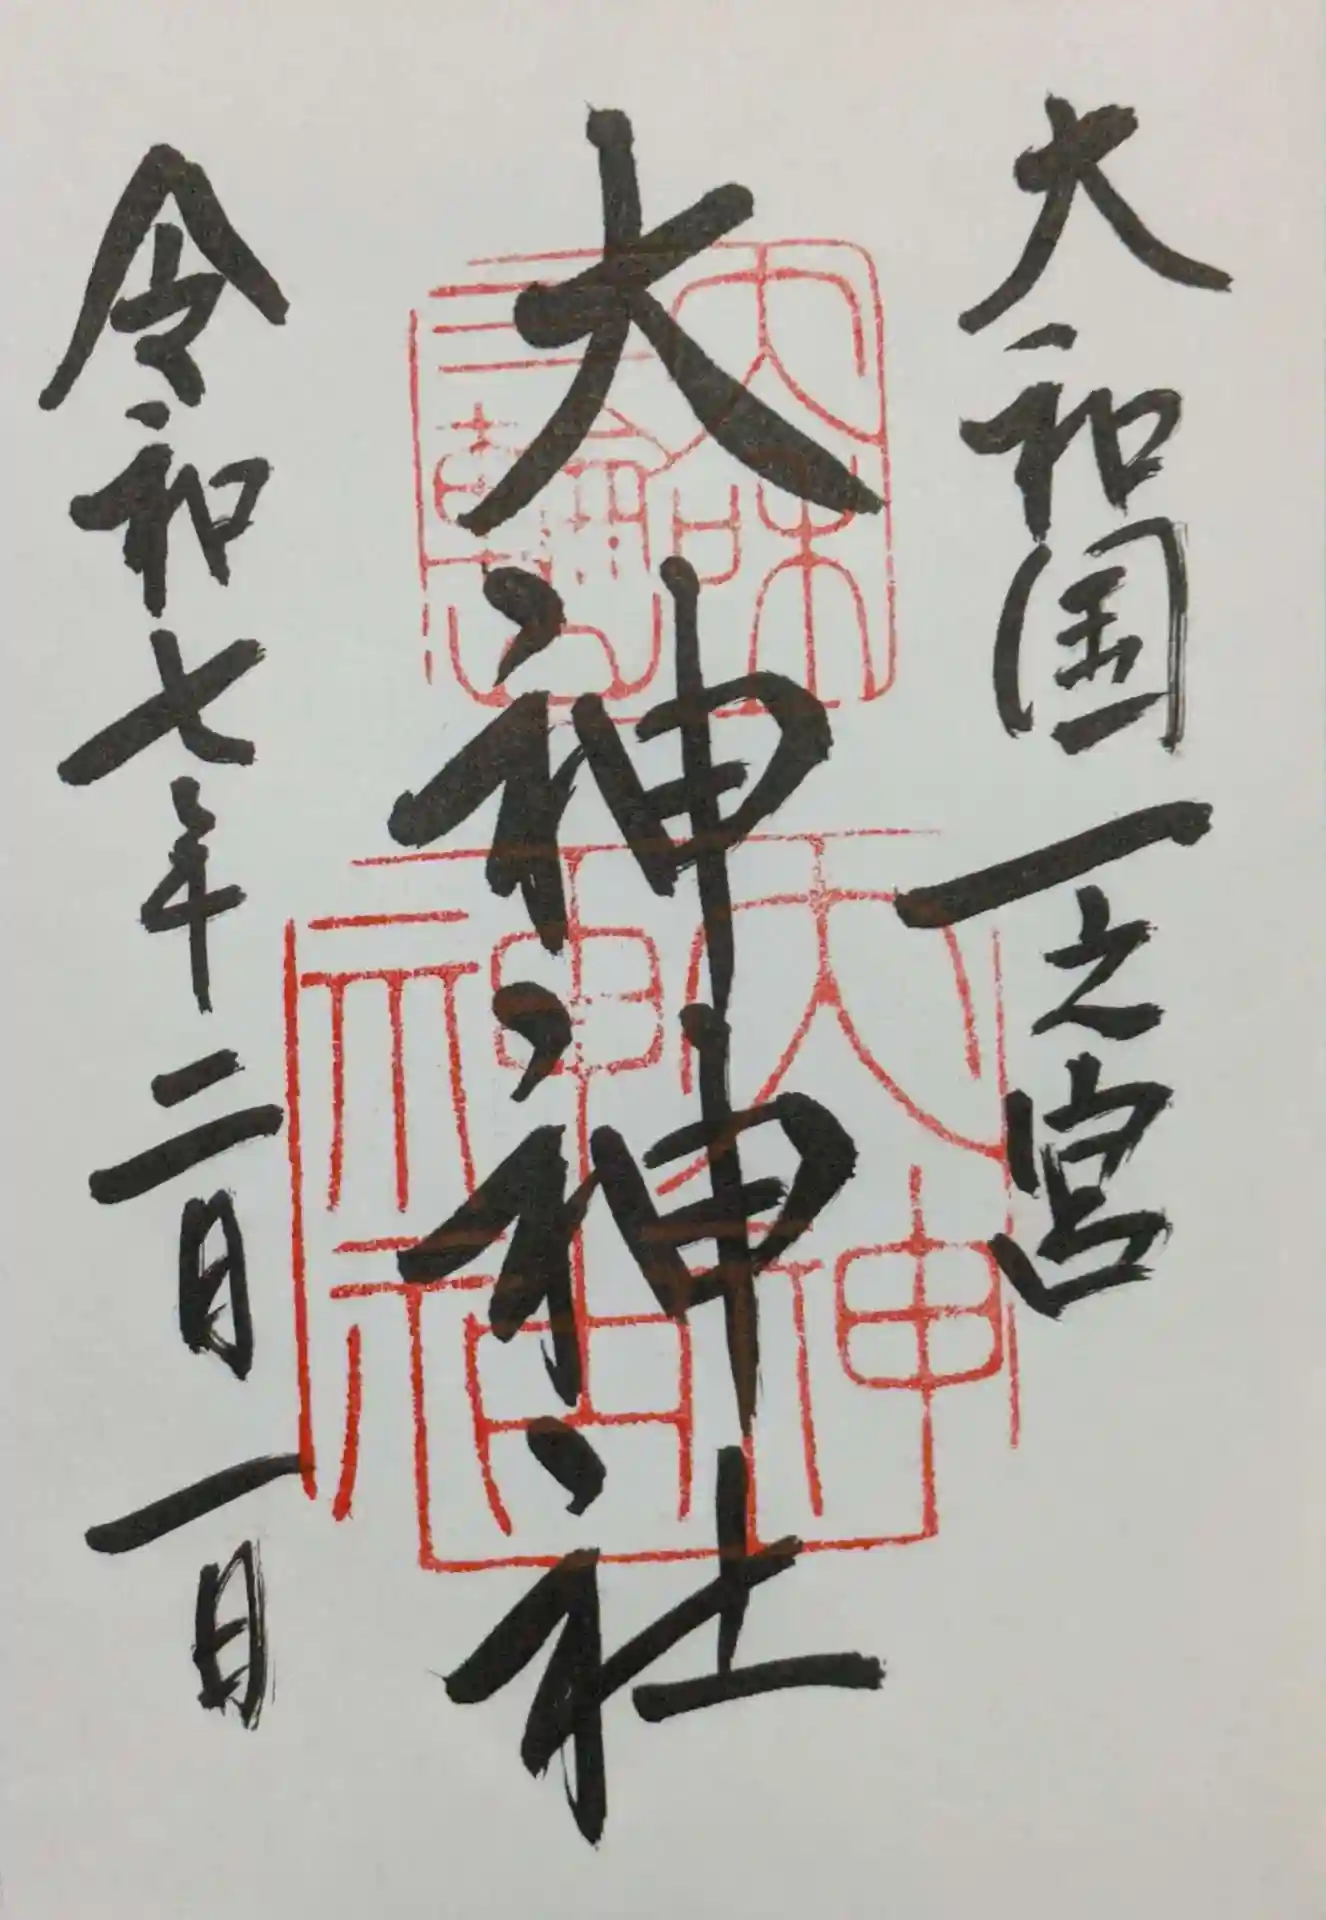 大和国一之宮
大神神社
令和七年二月一日